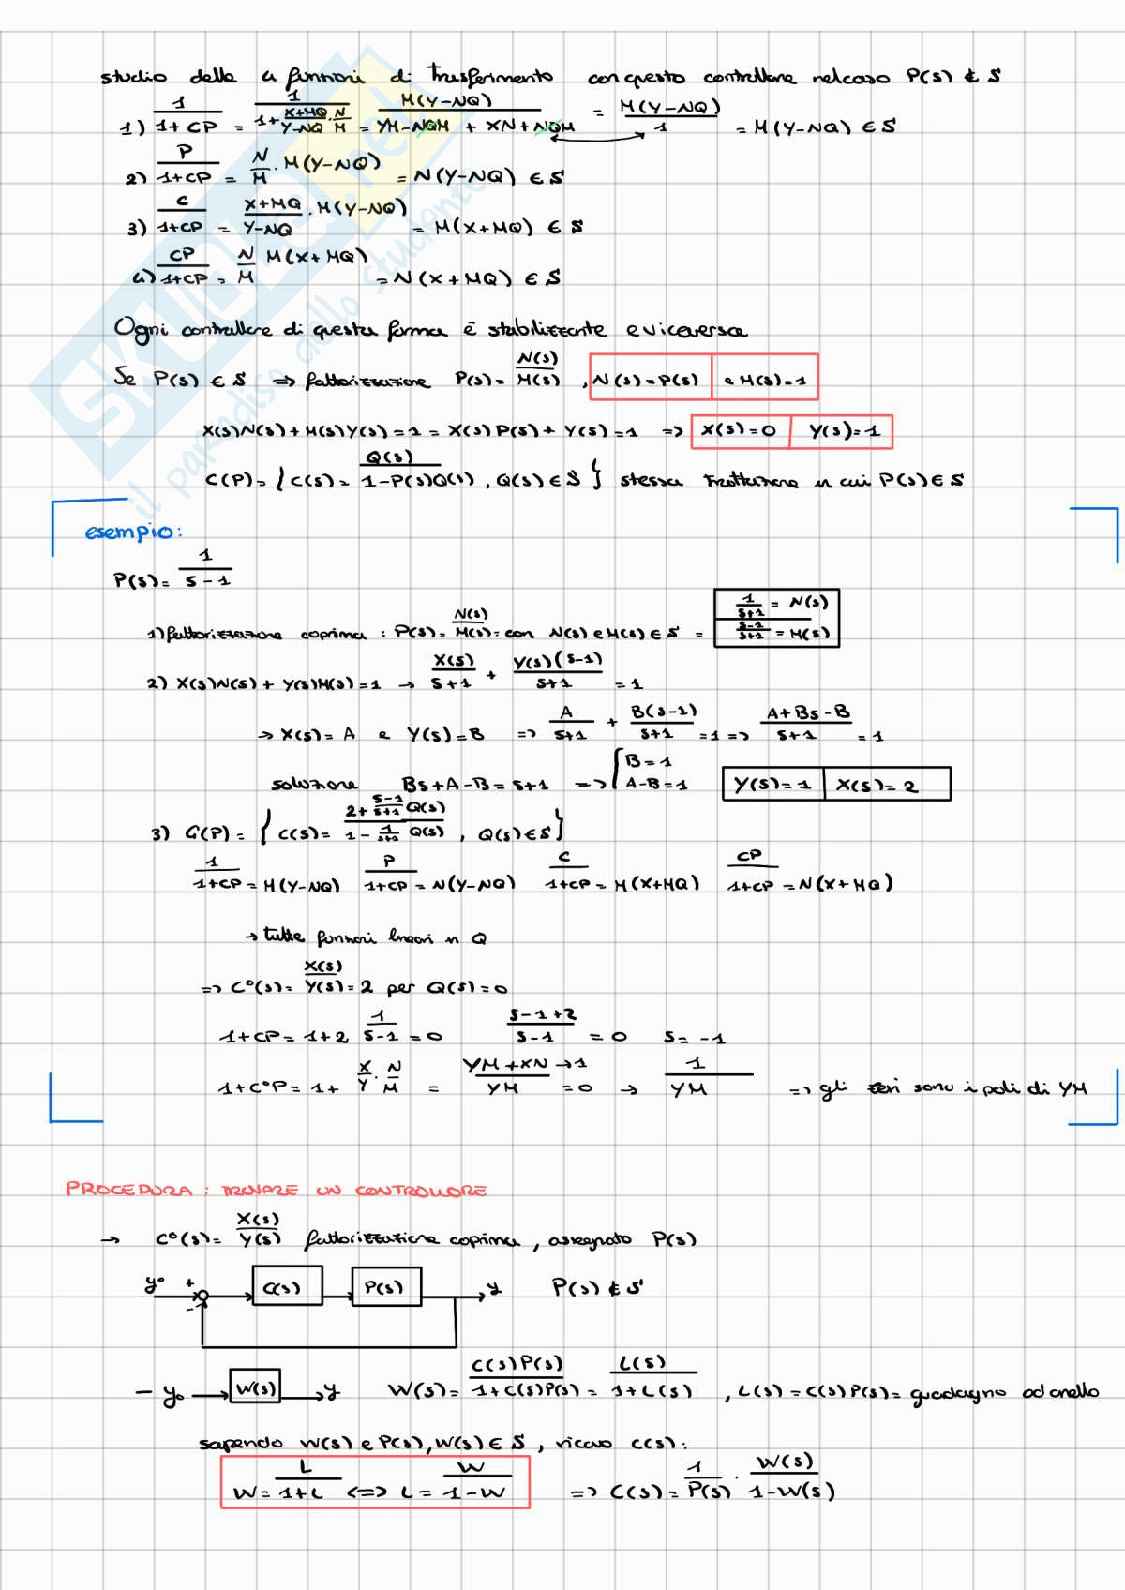 studio delle 4 funzioni di trasferimento con questo controllore nel caso P(s) ∉ S
1) 1/(1+CP) = 1/(1+ (X+MQ)/(Y-NQ) · N/M) = M(Y-NQ)/(YM-NQM + XN+NQM) = M(Y-NQ)/1 = M(Y-NQ) ∈ S
2) P/(1+CP) = N/M · M(Y-NQ) = N(Y-NQ) ∈ S
3) C/(1+CP) = (X+MQ)/(Y-NQ) · M(Y-NQ) = M(X+MQ) ∈ S
4) CP/(1+CP) = N/M M(X+MQ) = N(X+MQ) ∈ S
Ogni controllore di questa forma è stabilizzante e viceversa
Se P(s) ∈ S => fattorizzazione P(s) = N(s)/M(s) , N(s)=P(s) e M(s)=1
X(s)N(s)+M(s)Y(s)=1 = X(s)P(s)+Y(s)=1 => X(s)=0 Y(s)=1
C(P)= { C(s)= Q(s)/(1-P(s)Q(s)) , Q(s) ∈ S } stessa trattazione in cui P(s) ∈ S
esempio:
P(s)= 1/(s-1)
1) fattorizzazione coprima : P(s) = N(s)/M(s) = con N(s) e M(s) ∈ S = 1/(s+1) = N(s)
(s-1)/(s+1) = M(s)
2) X(s)N(s)+ Y(s)M(s)=1 → X(s)/(s+1) + Y(s)(s-1)/(s+1) = 1
→ X(s)= A e Y(s)=B => A/(s+1) + B(s-1)/(s+1) =1 => (A+Bs-B)/(s+1) = 1
soluzione Bs+A-B = s+1 => { B=1
A-B=1 Y(s)=1 X(s)=2
3) C(P)= { C(s)= (2+ (s-1)/(s+1) Q(s))/(1- 1/(s+1) Q(s)) , Q(s) ∈ S }
1/(1+CP) = M(Y-NQ) P/(1+CP) = N(Y-NQ) C/(1+CP) = M(X+MQ) CP/(1+CP) = N(X+MQ)
→ tutte funzioni lineari in Q
=> C°(s)= X(s)/Y(s) = 2 per Q(s)=0
1+CP= 1+2 1/(s-1) = 0 (s-1+2)/(s-1) = 0 s= -1
1+C°P= 1+ X/Y · N/M = (YM+XN → 1)/YM = 0 → 1/YM => gli zeri sono i poli di YM
PROCEDURA : TROVARE UN CONTROLLORE
→ C°(s)= X(s)/Y(s) fattorizzazione coprima , assegnato P(s)
y° + - C(s) P(s) y P(s) ∉ S
- y₀ W(s) y W(s)= C(s)P(s)/(1+C(s)P(s)) = L(s)/(1+L(s)) , L(s)=C(s)P(s)= guadagno ad anello
sapendo W(s) e P(s), W(s) ∈ S , ricavo C(s):
W = L/(1+L) <=> L = W/(1-W) => C(s)= 1/P(s) · W(s)/(1-W(s))
il paradiso dello studente